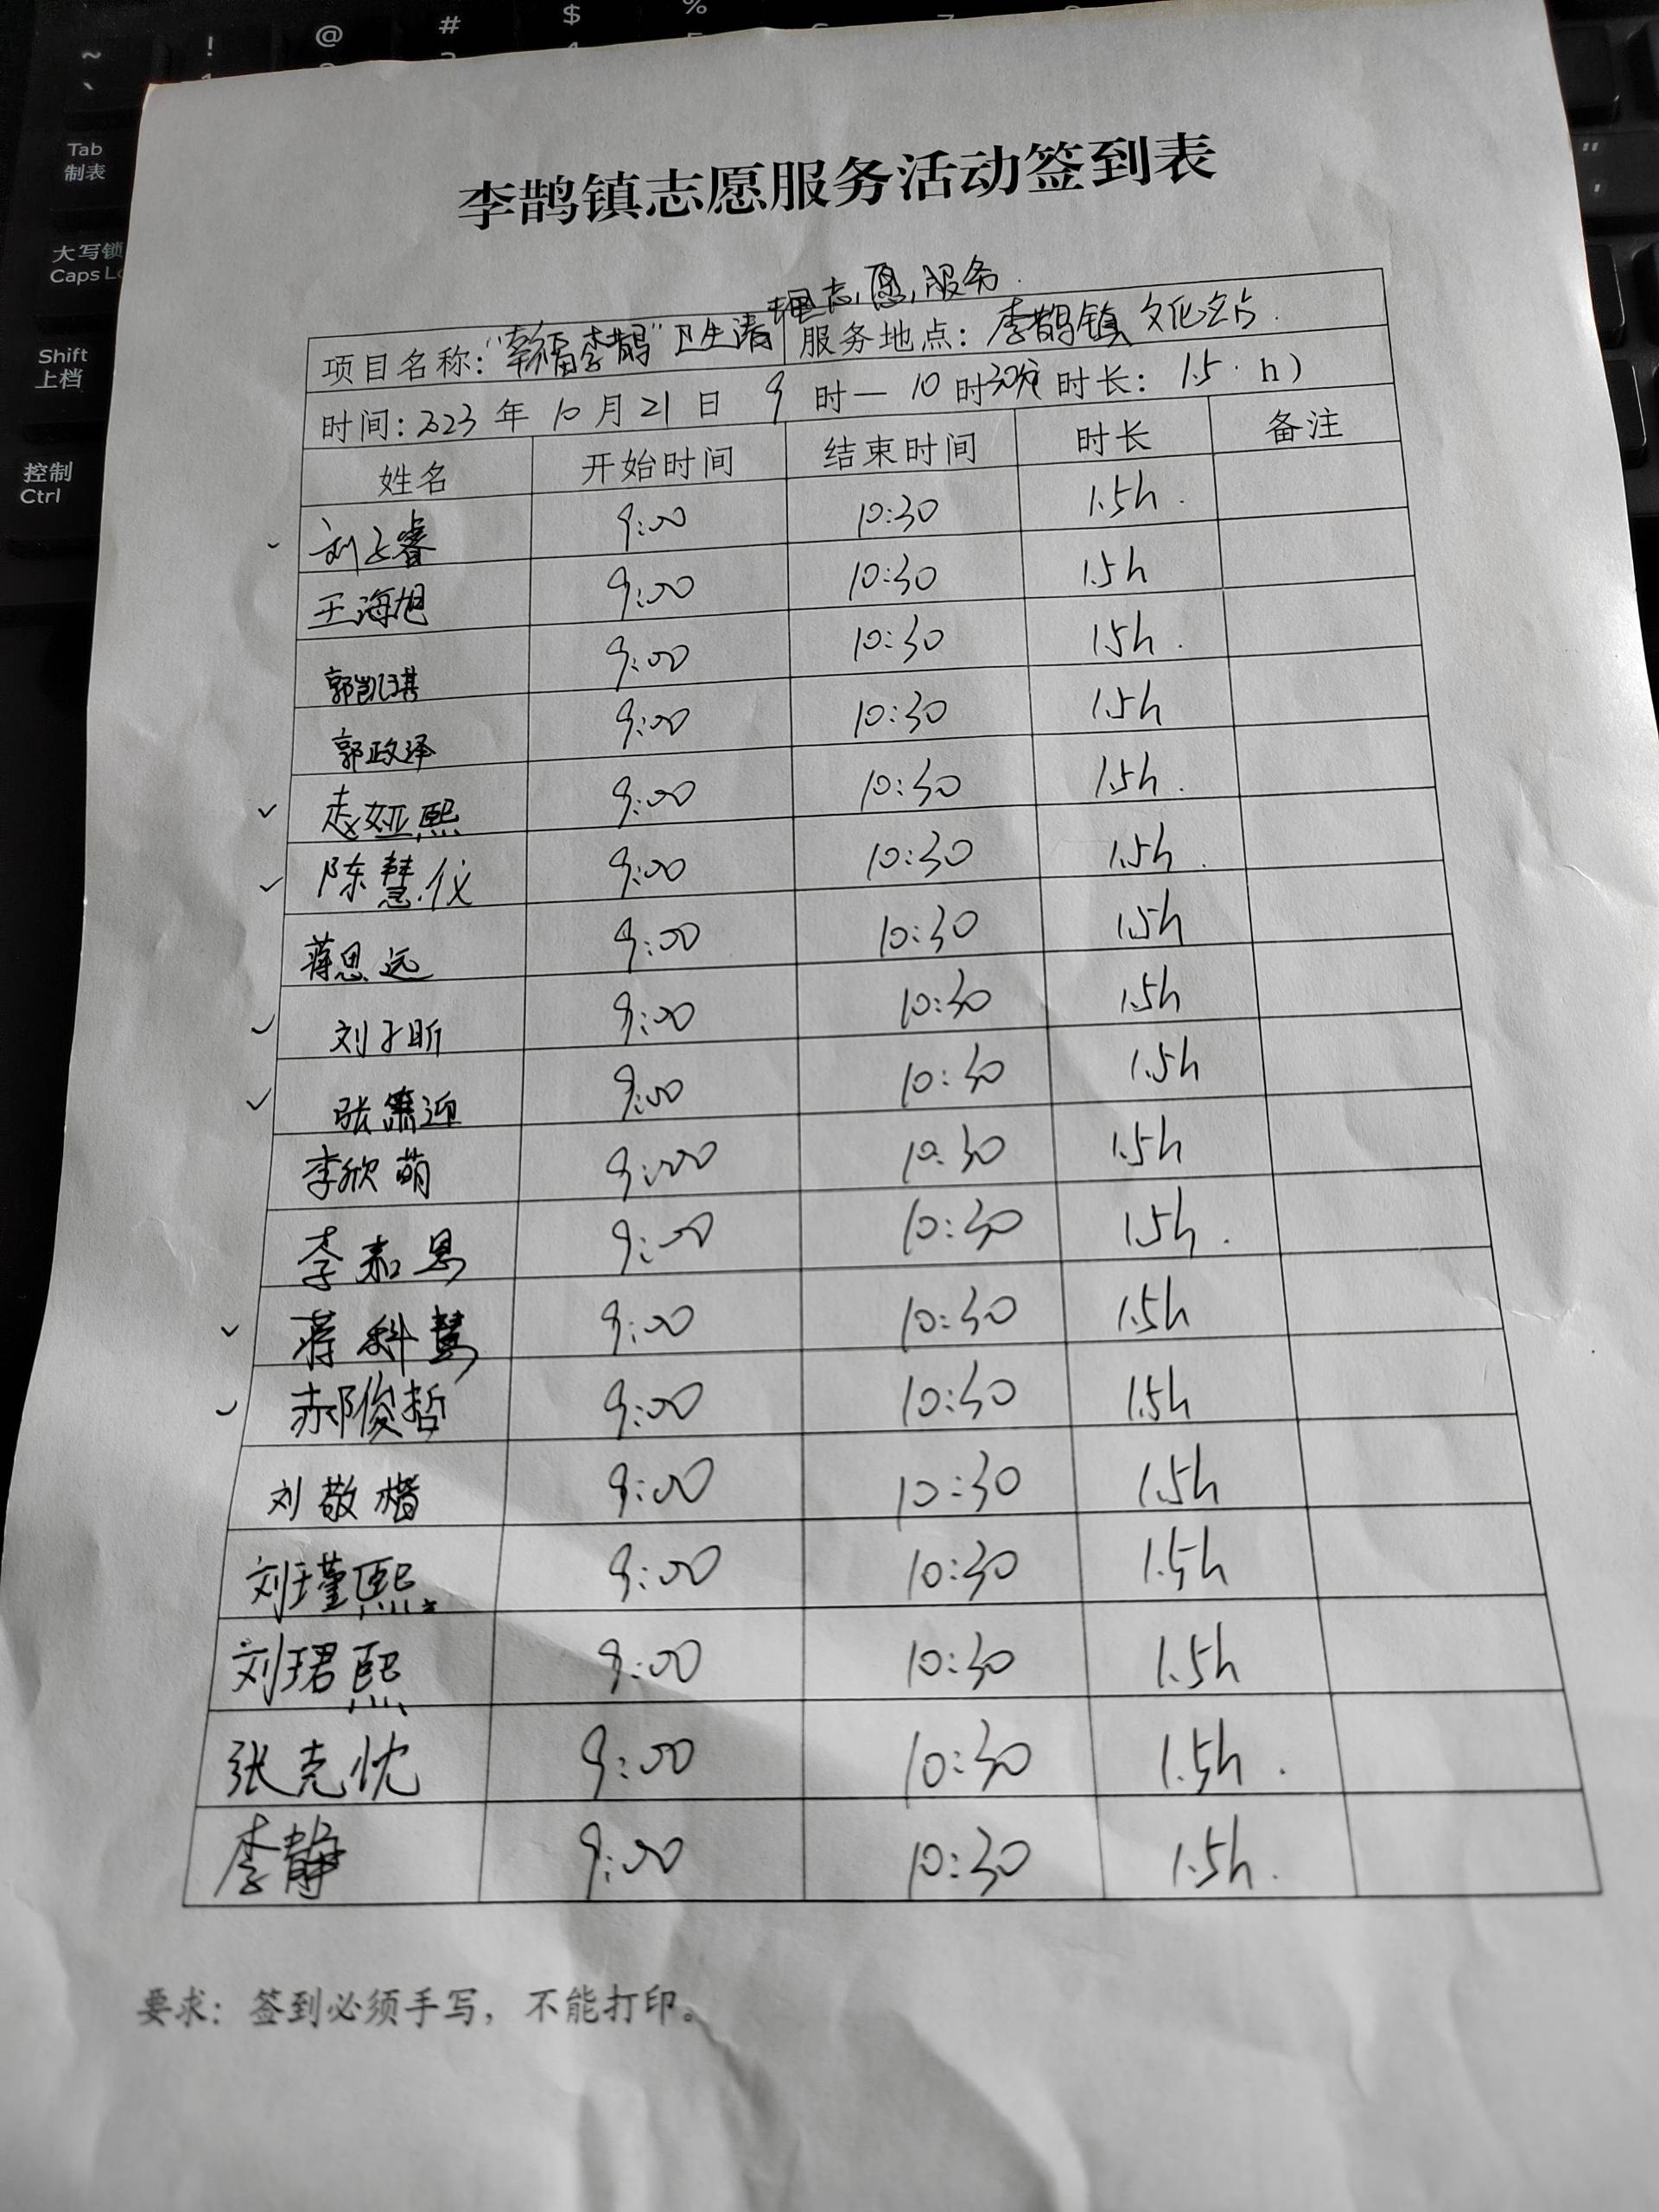 ~ ! @ # $ %
`
Tab
制表
大写锁
Caps L
Shift
上档
控制
Ctrl
李鹊镇志愿服务活动签到表
项目名称:“幸福李鹊”卫生清理志愿服务 服务地点:李鹊镇文化站
时间:2023年10月21日 9时—10时30分 时长:1.5 h)
姓名 开始时间 结束时间 时长 备注
刘子睿 9:00 10:30 1.5h.
王海旭 9:00 10:30 1.5h
郭凯琪 9:00 10:30 1.5h.
郭政泽 9:00 10:30 1.5h
赵娅熙 9:00 10:30 1.5h.
陈慧仪 9:00 10:30 1.5h.
蒋思远 9:00 10:30 1.5h
刘子昕 9:00 10:30 1.5h
张箫迎 9:00 10:30 1.5h
李欣萌 9:00 10:30 1.5h
李嘉恩 9:00 10:30 1.5h.
蒋科慧 9:00 10:30 1.5h
郝俊哲 9:00 10:30 1.5h
刘敬楷 9:00 10:30 1.5h
刘瑾熙 9:00 10:30 1.5h
刘珺熙 9:00 10:30 1.5h
张克忱 9:00 10:30 1.5h.
李静 9:00 10:30 1.5h.
要求:签到必须手写,不能打印。